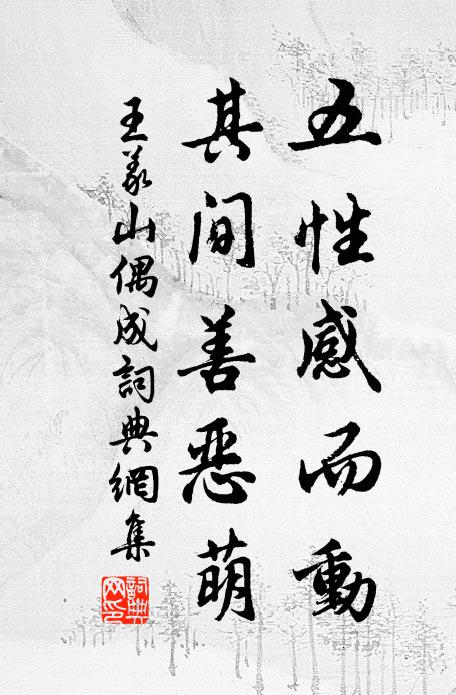 五性感而動
其間善惡萌
王義山偶成詞典網集
詞典網印